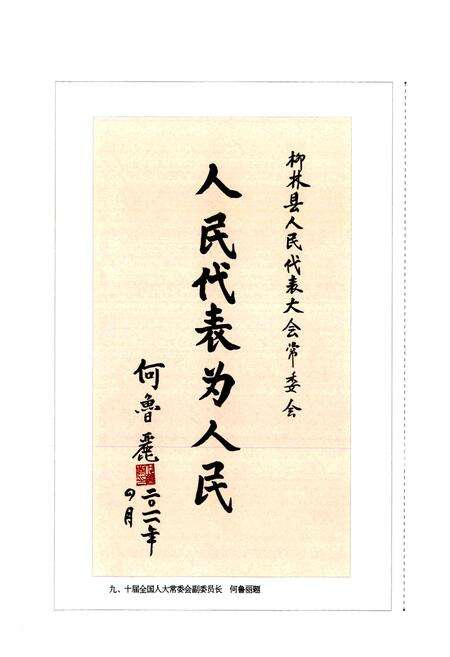 柳林县人民代表大会常委会
人民代表为人民
何鲁丽
二〇一一年
四月
九、十届全国人大常委会副委员长 何鲁丽题